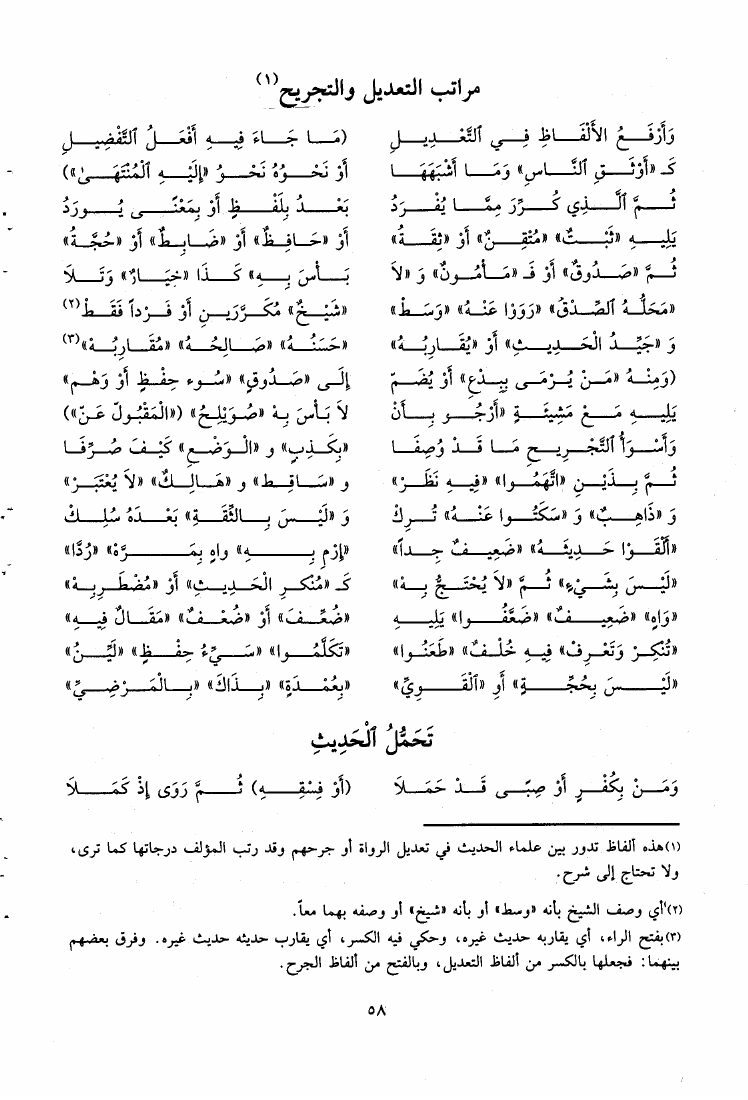 مراتب التعديل والتجريح(١)
وَأَرْفَعُ الأَلْفَاظِ فِي ٱلتَّعْدِيلِ (مَا جَاءَ فِيهِ أَفْعَلُ ٱلتَّفْضِيلِ
كَـ «أَوْثَقِ ٱلنَّاسِ» وَمَا أَشْبَهَهَا أَوْ نَحْوُهُ نَحْوُ «إِلَيْهِ ٱلْمُنْتَهَىٰ»)
ثُمَّ ٱلَّذِي كُرِّرَ مِمَّا يُفْرَدُ بَعْدُ بِلَفْظٍ أَوْ بِمَعْنًى يُورَدُ
يَلِيهِ «ثَبْتٌ» «مُتْقِنٌ» أَوْ «ثِقَةُ» أَوْ «حَافِظٌ» أَوْ «ضَابِطٌ» أَوْ «حُجَّةُ»
ثُمَّ «صَدُوقٌ» أَوْ فَـ «مَأْمُونٌ» وَ «لاَ بَأْسَ بِهِ» كَذَا «خِيَارٌ» وَتَلاَ
«مَحَلُّهُ ٱلصِّدْقُ» «رَوَوْا عَنْهُ» «وَسَطْ» «شَيْخٌ» مُكَرَّرَيْنِ أَوْ فَرْداً فَقَطْ(٢)
وَ «جَيِّدُ الْحَدِيثِ» أَوْ «يُقَارِبُهْ» «حَسَنُهُ» «صَالِحُهُ» «مُقَارِبُهْ»(٣)
(وَمِنْهُ «مَنْ يُرْمَى بِبِدْعٍ» أَوْ يُضَمّ إِلَى «صَدُوقٍ» «سُوءِ حِفْظٍ أَوْ وَهْم»
يَلِيهِ مَعْ مَشِيئَةٍ «أَرْجُو بِأَنْ لاَ بَأْسَ بِهْ» «صُوَيْلِحٌ» («الْمَقْبُولُ عَنْ»)
وَأَسْوَأُ ٱلتَّجْرِيحِ مَا قَدْ وُصِفَا «بِكَذِبٍ» و «الْوَضْعِ» كَيْفَ صُرِّفَا
ثُمَّ بِذَيْنِ «اتَّهَمُوا» «فِيهِ نَظَرْ» و «سَاقِطٌ» و «هَالِكٌ» «لاَ يُعْتَبَرْ»
وَ «ذَاهِبٌ» وَ «سَكَتُوا عَنْهُ» تُرِكْ وَ «لَيْسَ بِالثِّقَةِ» بَعْدَهُ سُلِكْ
«أَلْقَوْا حَدِيثَهُ» «ضَعِيفٌ جِداً» «إِرْمِ بِهِ» وَاهٍ بِمَرَّهْ» «رُدَّا»
«لَيْسَ بِشَيْءٍ» ثُمَّ «لاَ يُحْتَجُّ بِهْ» كَـ «مُنْكَرِ الْحَدِيثِ» أَوْ «مُضْطَرِبِهْ»
«وَاهٍ» «ضَعِيفٌ» «ضَعَّفُوا» يَلِيهِ «ضُعِّفَ» أَوْ «ضُعْفٌ» «مَقَالٌ فِيهِ»
«تُنْكِرْ وَتَعْرِفْ» فِيهِ خُلْفٌ» «طَعَنُوا» «تَكَلَّمُوا» «سَيِّءُ حِفْظٍ» «لَيِّنُ»
«لَيْسَ بِحُجَّةٍ» أَوِ «ٱلْقَوِيِّ» «بِعُمْدَةٍ» «بِذَاكَ» «بِالْمَرْضِيِّ»
تَحَمُّلُ ٱلْحَدِيثِ
وَمَنْ بِكُفْرٍ أَوْ صِبًى قَدْ حَمَلاَ (أَوْ فِسْقِهِ) ثُمَّ رَوَى إِذْ كَمَلاَ
(١)هذه ألفاظ تدور بين علماء الحديث في تعديل الرواة أو جرحهم وقد رتب المؤلف درجاتها كما ترى،
ولا تحتاج إلى شرح.
(٢)أي وصف الشيخ بأنه «وسط» أو بأنه «شيخ» أو وصفه بهما معاً.
(٣)بفتح الراء، أي يقاربه حديث غيره، وحكي فيه الكسر، أي يقارب حديثه حديث غيره. وفرق بعضهم
بينهما: فجعلها بالكسر من ألفاظ التعديل، وبالفتح من ألفاظ الجرح.
٥٨